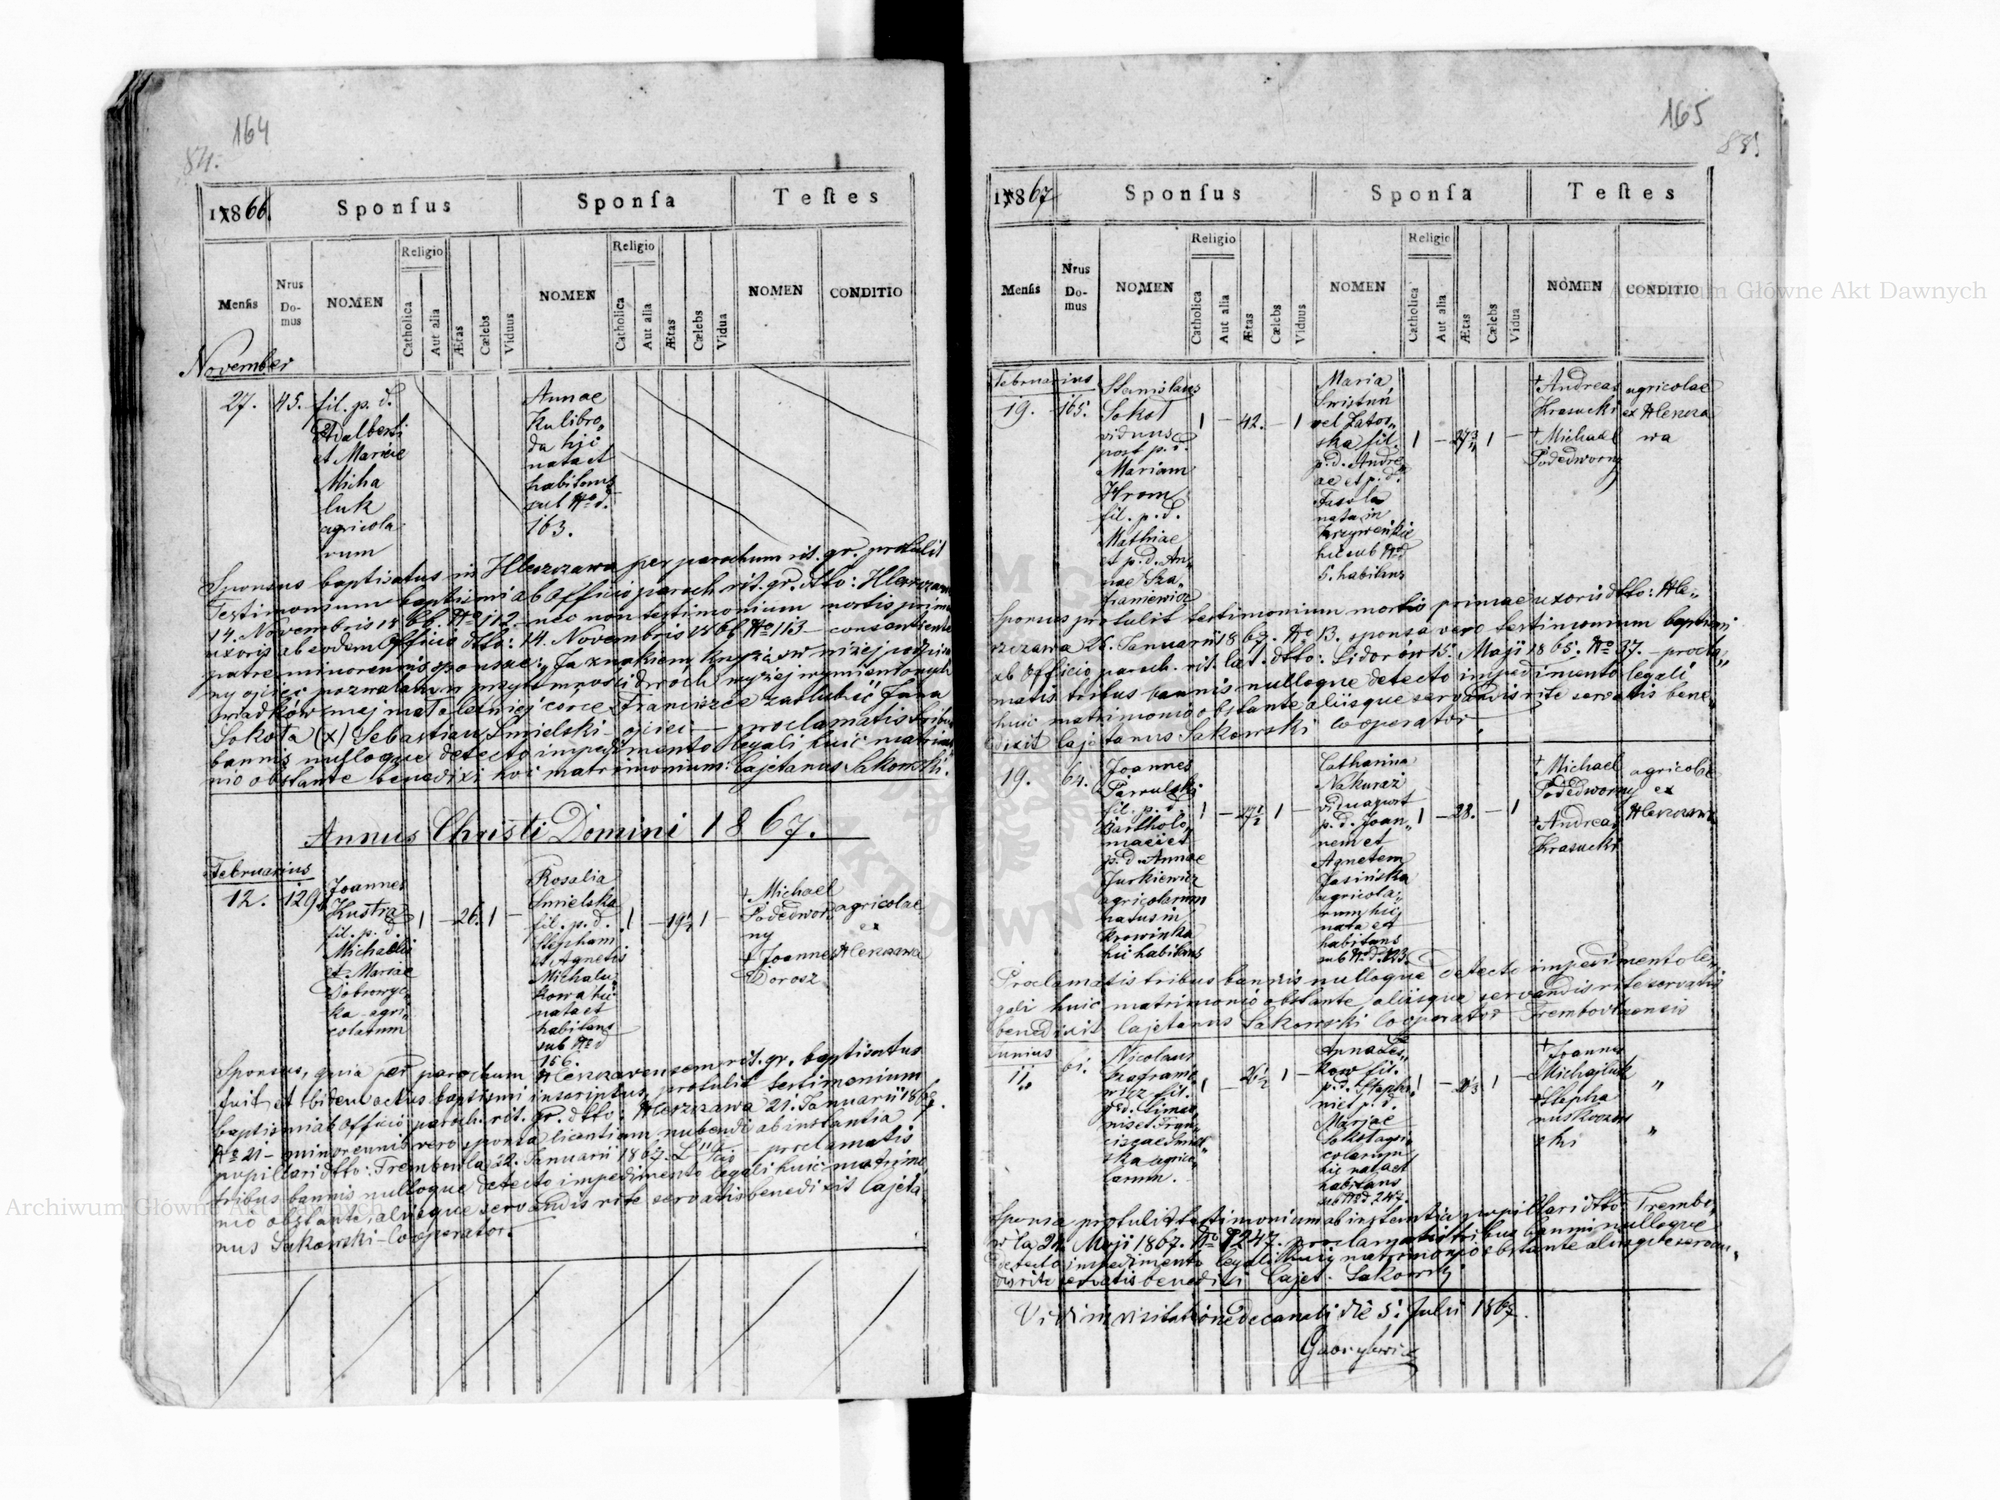 164
84.
1866.
Sponſus
Sponſa
Teſtes
Menſis
Nrus Domus
NOMEN
Religio
Catholica
Aut alia
Ætas
Cælebs
Viduus
NOMEN
Religio
Catholica
Aut alia
Ætas
Cælebs
Vidua
NOMEN
CONDITIO
November
27. 45.
fil. p. d.
Adalberti
et Mariae
Micha
luk
agricola
rum
Annae
Kulibro„
da hic
nata et
habitans
sub No d.
163.
Sponsus baptisatus in Hleszczawa per parochum rit. gr. protulit
Testimonium baptismi ab Officio paroch. rit. gr. dtto: Hleszczawa
14. Novembris 1866. No 112 – nec non testimonium mortis primae
uxoris ab eodem Officio dtto: 14. Novembris 1866 No 113 – consentiente
patre minorennis sponsae: „Ja znakiem krzyża św. niżej podpisa
ny ojciec pozwalam w przytomności dwóch wyżej wymienionych
świadków mej małoletniej córce Franciszce zaślubić Jana
Sokoła (x) Sebastian Śmielski – ojciec – proclamatis tribus
bannis nulloque detecto impedimento legali huic matrimo
nio obstante benedixi hoc matrimonium: Cajetanus Sakowski.
Annus Christi Domini 1867.
Februarius
12. 129.
Joannes
Kustra
fil. p. d.
Michaelis
et Mariae
Dobrowyc
ka agri„
colarum
1 – 26. 1 –
Rosalia
Śmielska
fil. p. d.
Stephani
et Agnetis
Michalu„
kowa hic
nata et
habitans
sub No d
156.
1 – 19½ 1 –
† Michael
Podedwor
ny
† Joannes
Dorosz
agricolae
ex
Hleszczawa
Sponsus, quia per parochum Hleszczavensem rit. gr. baptisatus
fuit et ibidem actus baptismi inscriptus, protulit testimonium
baptismi ab Officio paroch. rit. gr. dtto: Hleszczawa 21. Januarii 1867.
No 21 – minorennis vero sponsa licentiam nubendi ab instantia
pupillari dtto: Trembowla 22. Januarii 1867. – proclamatis
tribus bannis nulloque detecto impedimento legali huic matrimo„
nio obstante, aliisque servandis rite servatis benedixit Cajeta„
nus Sakowski – Cooperator.
165
85.
1867
Sponſus
Sponſa
Teſtes
Menſis
Nrus Domus
NOMEN
Religio
Catholica
Aut alia
Ætas
Cælebs
Viduus
NOMEN
Religio
Catholica
Aut alia
Ætas
Cælebs
Vidua
NOMEN
CONDITIO
Februarius
19. 165.
Stanislaus
Sokoł
viduus
post p. d.
Mariam
Hrom
fil. p. d.
Mathiae
et p. d. An„
nae Sza„
franiewicz
1 – 42. – 1
Maria
Świstun
vel Zator„
ska fil.
p. d. Andre„
ae et p. d.
Teslla
nata in
hic sub No d
5. habitans
1 – 1 –
† Andreas
Krasucki
† Michael
Podedworny
agricolae
ex Hleszcza
wa
Sponsus protulit testimonium mortis primae uxoris dtto: Hle„
szczawa 26. Januarii 1867. No 13. sponsa vero testimonium baptismi
ab Officio paroch. rit. lat. dtto: Sidorów 15. Maji 1865. No 37. – procla„
matis tribus bannis nulloque detecto impedimento legali
huic matrimonio obstante, aliisque servandis rite servatis bene„
dixit Cajetanus Sakowski Cooperator
19. 64.
Joannes
fil. p. d.
Bartholo„
maei et
p. d. Annae
Jurkiewicz
agricolarum
natus in
Krowinka
hic habitans
1 – 27½ 1 –
Catharina
Nakuraż
vidua post
p. d. Joan„
nem et
Agnetem
Jasińska
agricola„
rum hic
nata et
habitans
sub No d. 123.
1 – 28. – 1
† Michael
Podedworny
† Andreas
Krasucki
agricolae
ex
Hleszczawa
Proclamatis tribus bannis nulloque detecto impedimento le„
gali huic matrimonio obstante, aliisque servandis rite servatis
benedixit Cajetanus Sakowski Cooperator Trembovlaensis
Junius
11. 61.
Nicolaus
wicz fil.
misci et Fran„
ciscae
ska agrico„
larum.
1 – 1 –
Anna Les„
kow fil.
p. d. Stepha„
ni et p. d.
Mariae
Sokoł agri„
colarum
hic nata et
habitans
sub No d. 247.
1 – 1 –
† Joannes
Michajluk „
† Stepha
nus
ski „
Sponsa protulit testimonium ab instantia pupillari dtto: Trembo„
wla 24. Maji 1867. No 7247. proclamatis tribus bannis nulloque
detecto impedimento legali huic matrimonio obstante aliisque servan„
dis rite servatis benedixi Cajet. Sakowski
Vidi in visitatione decanali die 5. Julii 1867.
Archiwum Główne Akt Dawnych
Archiwum Główne Akt Dawnych